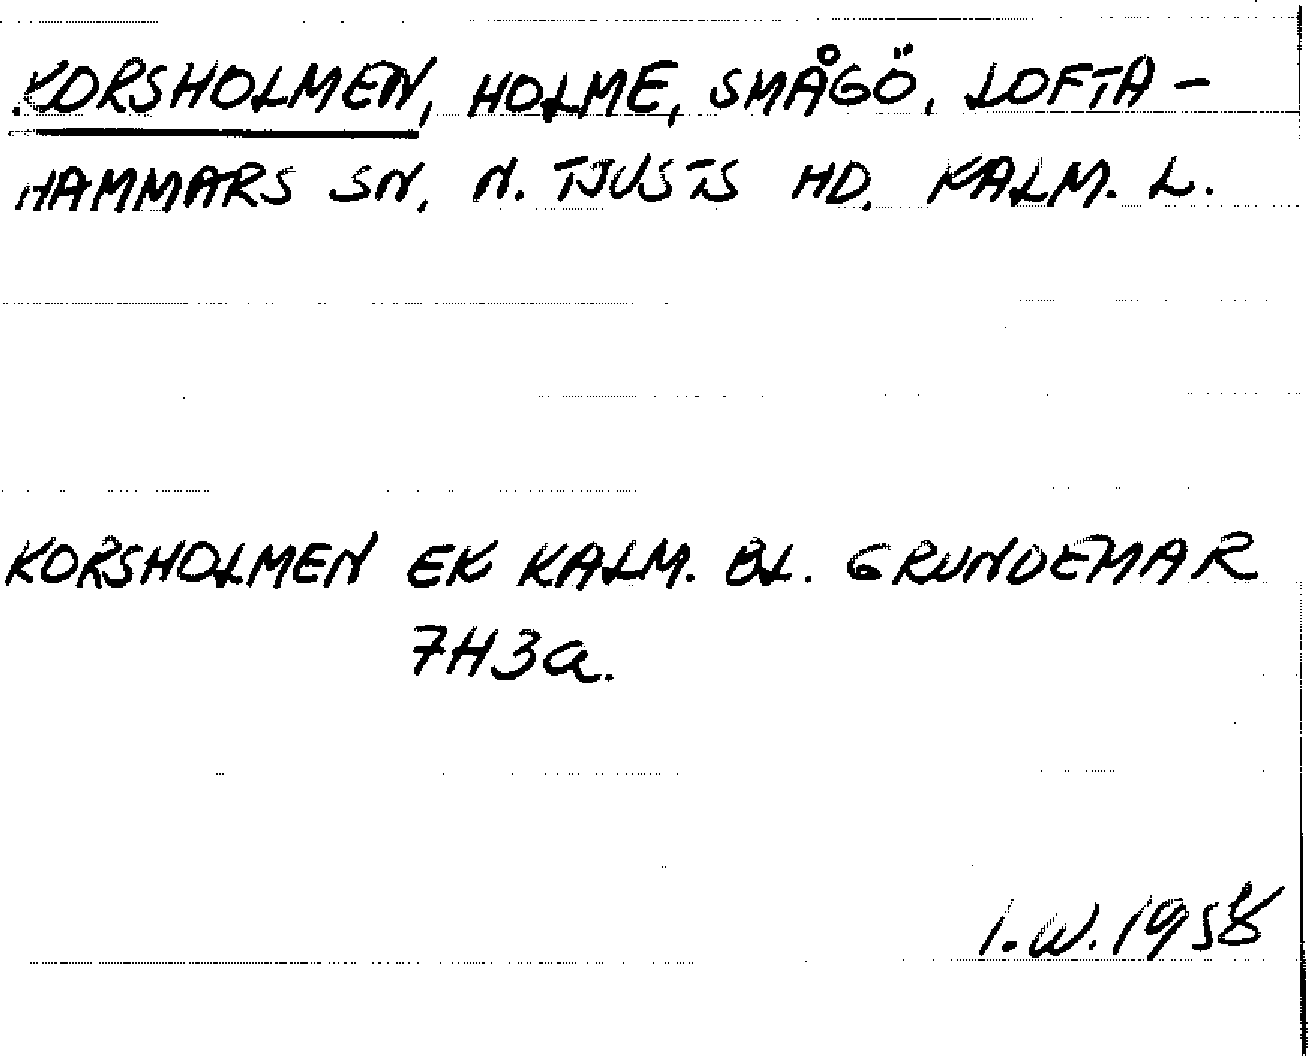 KORSHOLMEN, HOLME, SMÅGÖ, LOFTA-
HAMMARS SN, N. TJUSTS HD, KALM. L.
KORSHOLMEN EK KALM. BL. GRUNDEMAR
7H3a.
I.W. 1958